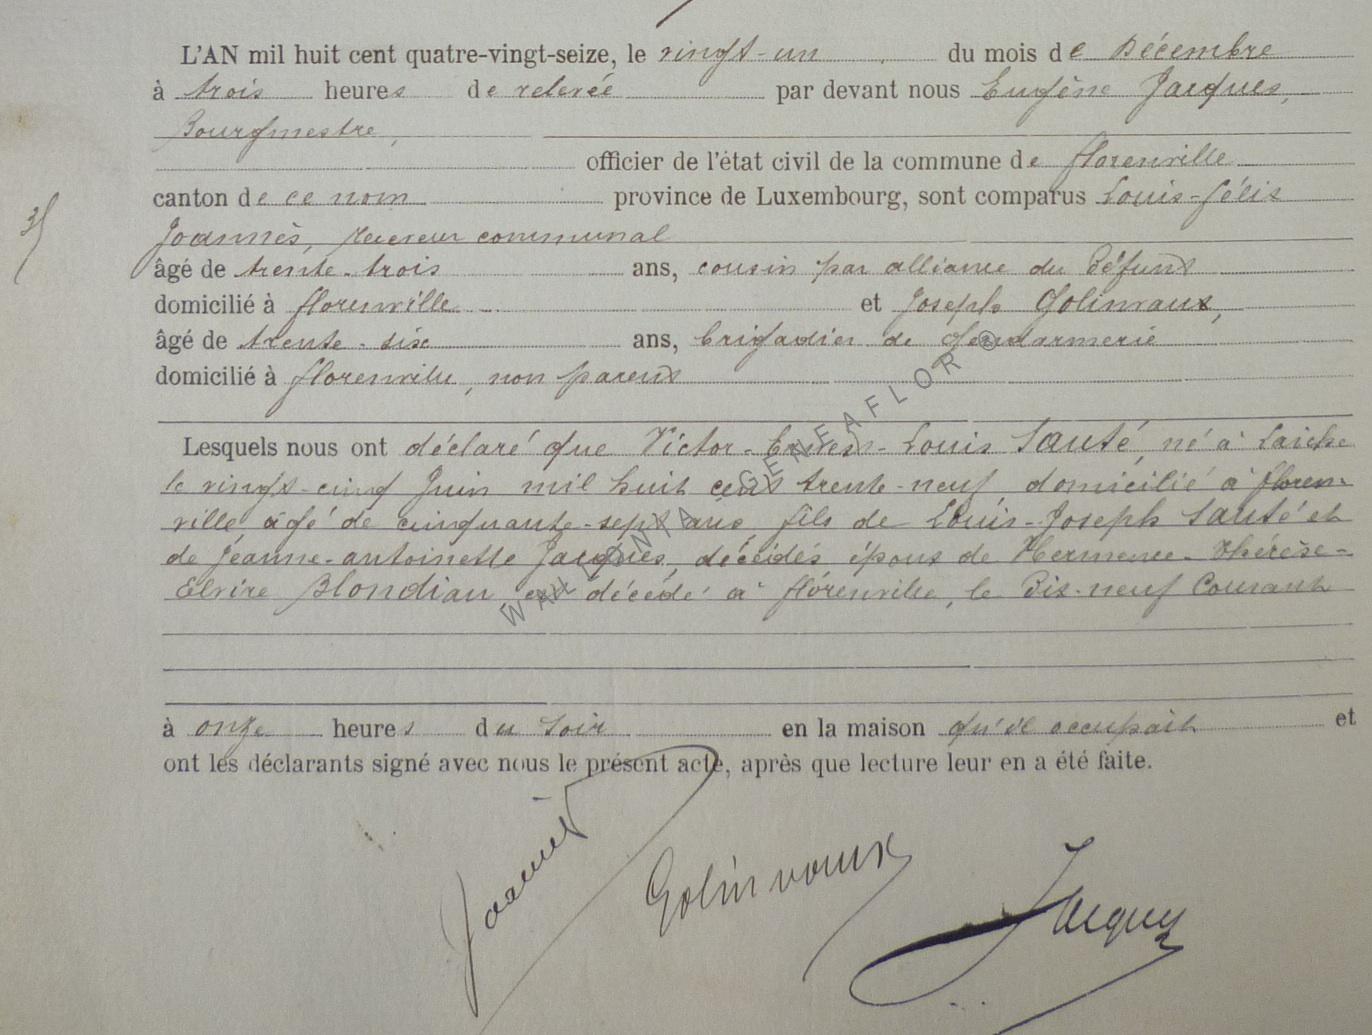 L'AN mil huit cent quatre-vingt-seize, le vingt-un du mois de Décembre
à trois heures de relevée par devant nous Eugène Jacques,
Bourgmestre,
officier de l'état civil de la commune de florenville
canton de ce nom province de Luxembourg, sont comparus Louis-félix
Joannès, receveur communal
âgé de trente-trois ans, cousin par alliance du Défunt
domicilié à florenville et Joseph Golinvaux,
âgé de trente-six ans, brigadier de gendarmerie
domicilié à florenville, non parent
Lesquels nous ont déclaré que Victor-Ernest-Louis Sauté, né à Laiche
le vingt-cinq Juin mil huit cent trente-neuf domicilié à floren-
ville âgé de cinquante-sept ans, fils de Louis-Joseph Sauté et
de Jeanne-antoinette Jacques, décédés époux de Hermence-Thérèse-
Elvire Blondiau est décédé à florenville, le Dix-neuf Courant
à onze heures du soir en la maison qu'il occupait et
ont les déclarants signé avec nous le présent acte, après que lecture leur en a été faite.
Joannès
Golinvaux
Jacques
WALLONIA GENEAFLOR ©